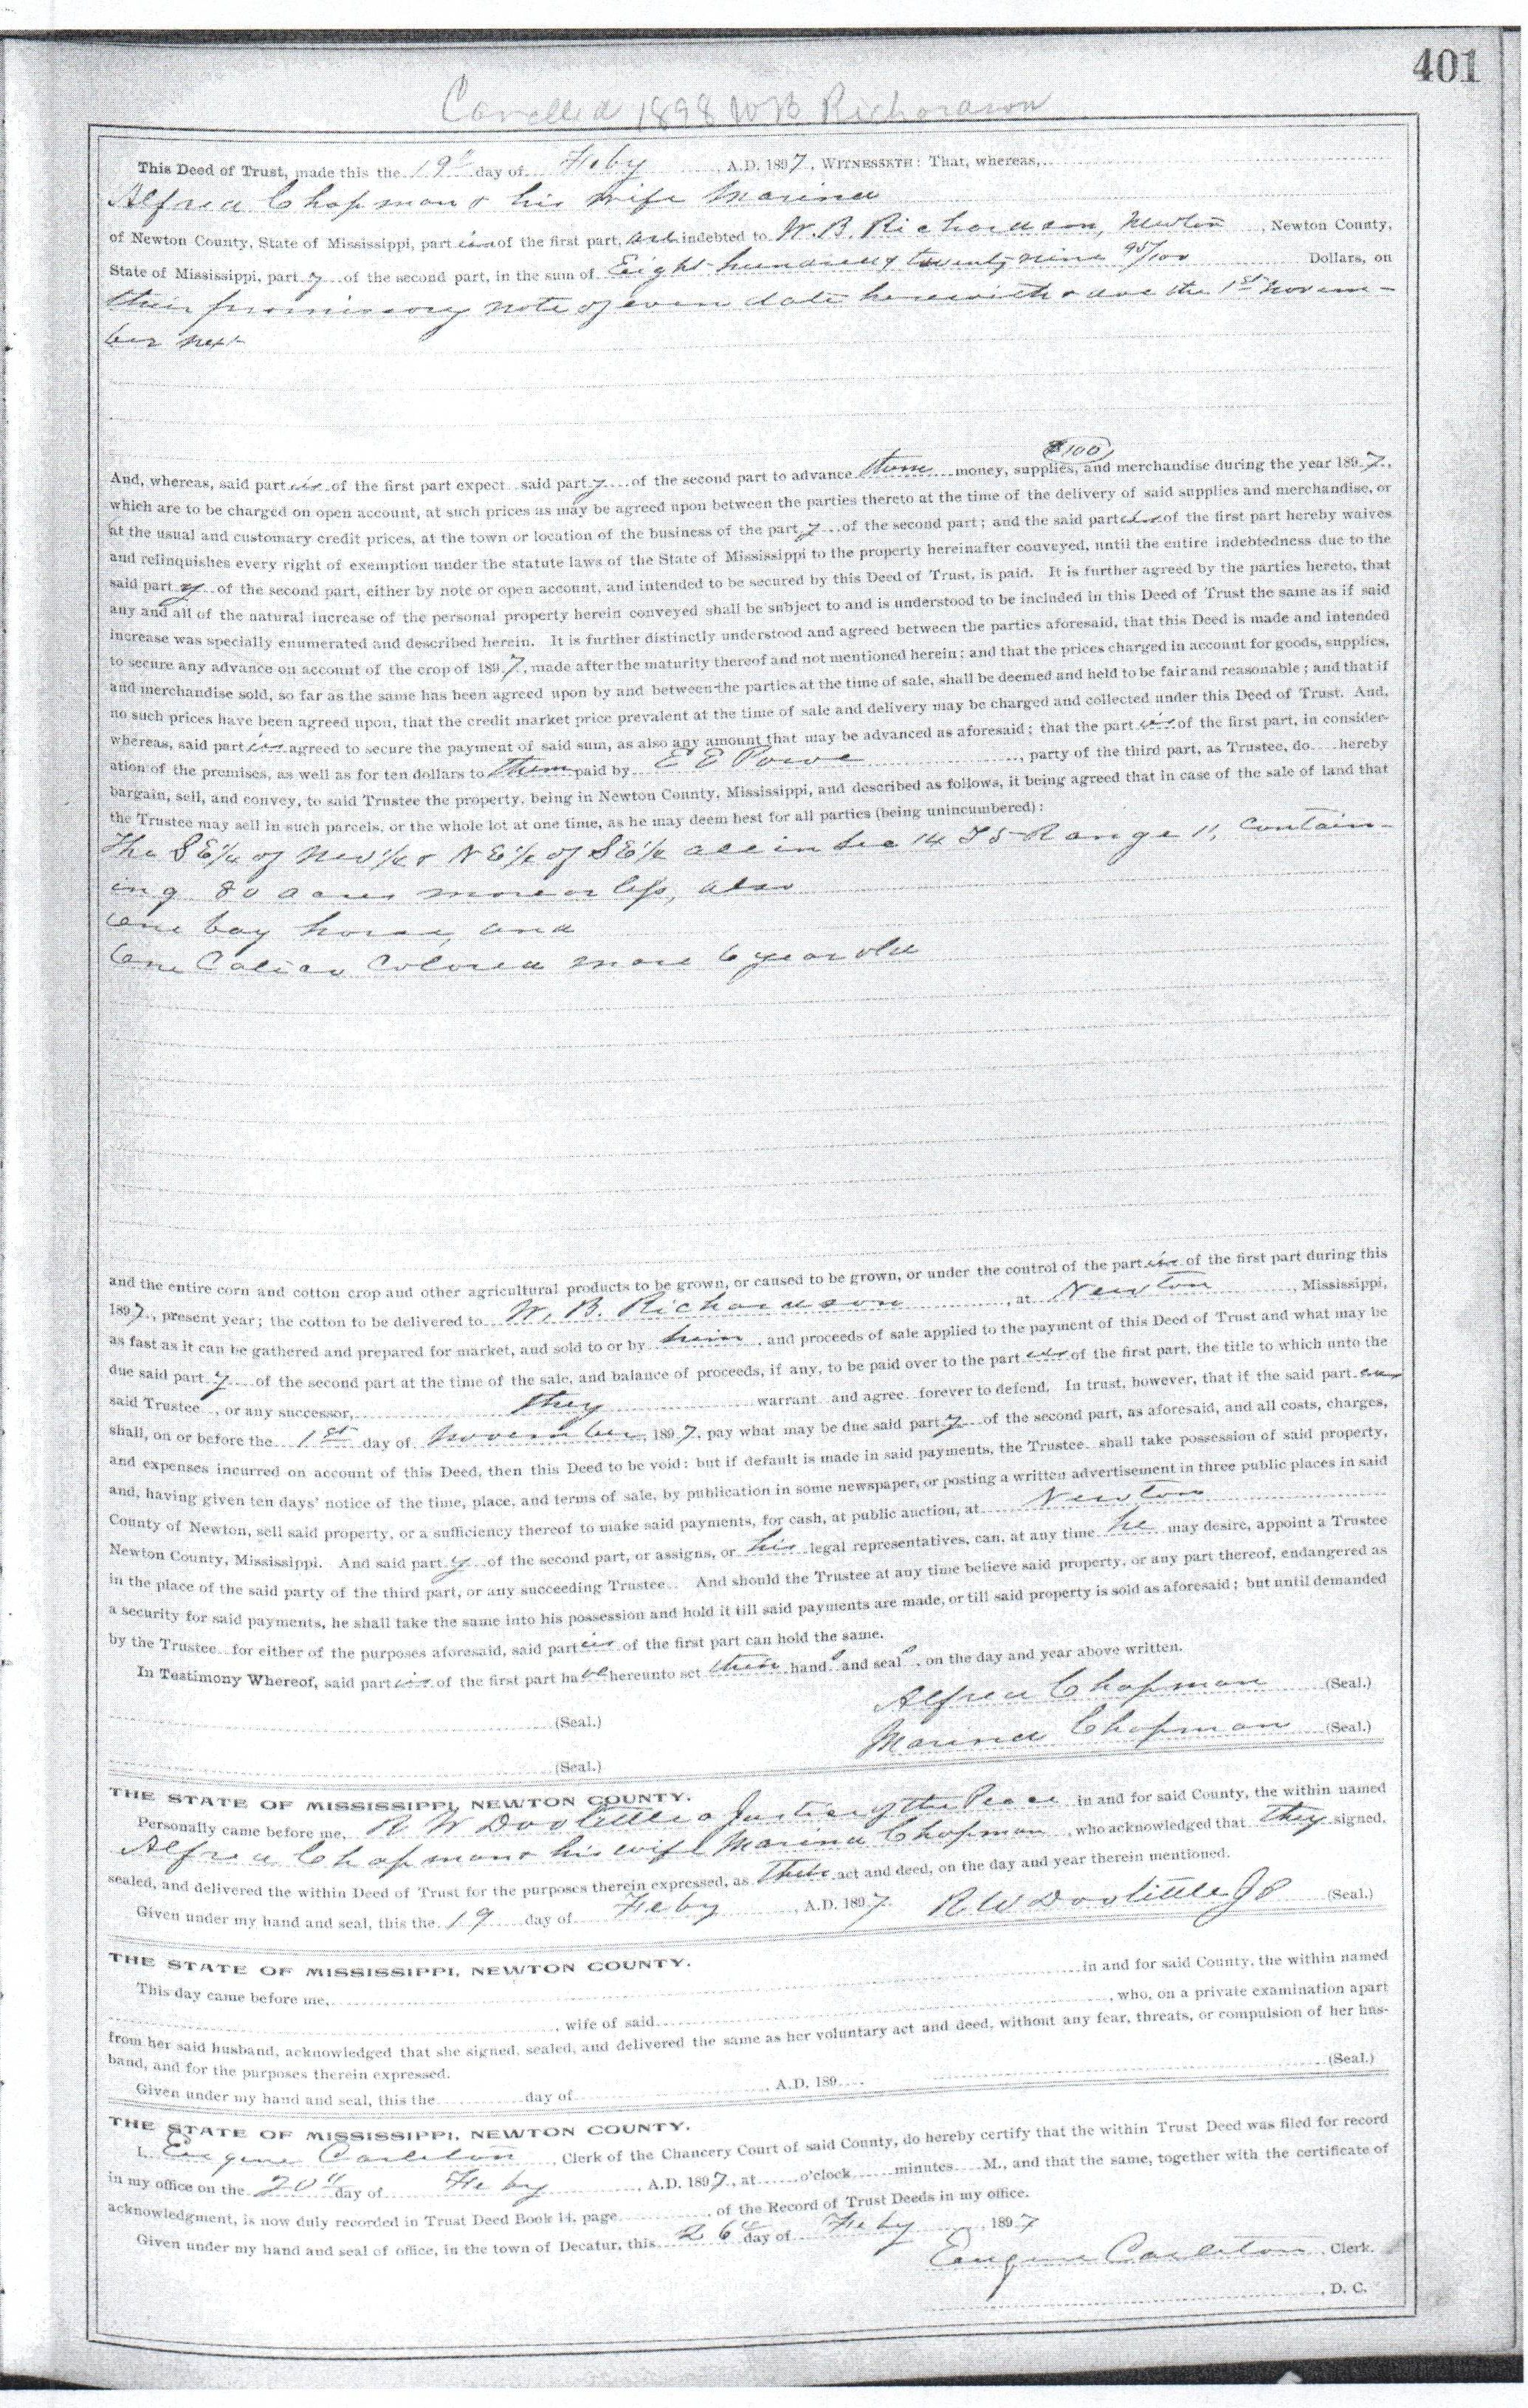 401
Cancelled 1898 W B Richardson
This Deed of Trust, made this the 19th day of Feby, A.D. 1897, WITNESSETH: That, whereas,
Alfred Chapman & his wife Marina
of Newton County, State of Mississippi, part ies of the first part, are indebted to W. B. Richardson, Newton, Newton County,
State of Mississippi, part y of the second part, in the sum of Eight hundred & twenty nine 95/100 Dollars, on
their promissory note of even date herewith & due the 1st Novem-
ber next
$100
And, whereas, said part ies of the first part expect said part y of the second part to advance them money, supplies, and merchandise during the year 1897,
which are to be charged on open account, at such prices as may be agreed upon between the parties thereto at the time of the delivery of said supplies and merchandise, or
at the usual and customary credit prices, at the town or location of the business of the part y of the second part; and the said part ies of the first part hereby waives
and relinquishes every right of exemption under the statute laws of the State of Mississippi to the property hereinafter conveyed, until the entire indebtedness due to the
said part y of the second part, either by note or open account, and intended to be secured by this Deed of Trust, is paid. It is further agreed by the parties hereto, that
any and all of the natural increase of the personal property herein conveyed shall be subject to and is understood to be included in this Deed of Trust the same as if said
increase was specially enumerated and described herein. It is further distinctly understood and agreed between the parties aforesaid, that this Deed is made and intended
to secure any advance on account of the crop of 1897, made after the maturity thereof and not mentioned herein; and that the prices charged in account for goods, supplies,
and merchandise sold, so far as the same has been agreed upon by and between the parties at the time of sale, shall be deemed and held to be fair and reasonable; and that if
no such prices have been agreed upon, that the credit market price prevalent at the time of sale and delivery may be charged and collected under this Deed of Trust. And,
whereas, said part ies agreed to secure the payment of said sum, as also any amount that may be advanced as aforesaid; that the part ies of the first part, in consider-
ation of the premises, as well as for ten dollars to them paid by E E Powe, party of the third part, as Trustee, do hereby
bargain, sell, and convey, to said Trustee the property, being in Newton County, Mississippi, and described as follows, it being agreed that in case of the sale of land that
the Trustee may sell in such parcels, or the whole lot at one time, as he may deem best for all parties (being unincumbered):
The SE1/4 of NW1/4 & NE1/4 of SE1/4 all in Sec 14 T5 Range 11, contain-
ing 80 acres more or less, also
One bay horse, and
One Calico Colored mare 6 year old
and the entire corn and cotton crop and other agricultural products to be grown, or caused to be grown, or under the control of the part ies of the first part during this
1897, present year; the cotton to be delivered to W. B. Richardson, at Newton, Mississippi,
as fast as it can be gathered and prepared for market, and sold to or by him, and proceeds of sale applied to the payment of this Deed of Trust and what may be
due said part y of the second part at the time of the sale, and balance of proceeds, if any, to be paid over to the part ies of the first part, the title to which unto the
said Trustee, or any successor, they warrant and agree forever to defend. In trust, however, that if the said part ies
shall, on or before the 1st day of November, 1897, pay what may be due said part y of the second part, as aforesaid, and all costs, charges,
and expenses incurred on account of this Deed, then this Deed to be void: but if default is made in said payments, the Trustee shall take possession of said property,
and, having given ten days' notice of the time, place, and terms of sale, by publication in some newspaper, or posting a written advertisement in three public places in said
County of Newton, sell said property, or a sufficiency thereof to make said payments, for cash, at public auction, at Newton
Newton County, Mississippi. And said part y of the second part, or assigns, or his legal representatives, can, at any time he may desire, appoint a Trustee
in the place of the said party of the third part, or any succeeding Trustee. And should the Trustee at any time believe said property, or any part thereof, endangered as
a security for said payments, he shall take the same into his possession and hold it till said payments are made, or till said property is sold as aforesaid; but until demanded
by the Trustee for either of the purposes aforesaid, said part ies of the first part can hold the same.
In Testimony Whereof, said part ies of the first part have hereunto set their hands and seals, on the day and year above written.
Alfred Chapman (Seal.)
(Seal.)
Marina Chapman (Seal.)
(Seal.)
THE STATE OF MISSISSIPPI, NEWTON COUNTY.
Personally came before me, R W Doolittle a Justice of the Peace in and for said County, the within named
Alfred Chapman & his wife Marina Chapman, who acknowledged that they signed,
sealed, and delivered the within Deed of Trust for the purposes therein expressed, as their act and deed, on the day and year therein mentioned.
Given under my hand and seal, this the 19 day of Feby, A.D. 1897. R W Doolittle J P (Seal.)
THE STATE OF MISSISSIPPI, NEWTON COUNTY.
This day came before me, in and for said County, the within named
, wife of said , who, on a private examination apart
from her said husband, acknowledged that she signed, sealed, and delivered the same as her voluntary act and deed, without any fear, threats, or compulsion of her hus-
band, and for the purposes therein expressed.
Given under my hand and seal, this the day of , A.D. 189 (Seal.)
THE STATE OF MISSISSIPPI, NEWTON COUNTY.
I, Eugene Carleton, Clerk of the Chancery Court of said County, do hereby certify that the within Trust Deed was filed for record
in my office on the 20th day of Feby, A.D. 1897, at o'clock minutes M., and that the same, together with the certificate of
acknowledgment, is now duly recorded in Trust Deed Book 14, page , of the Record of Trust Deeds in my office.
Given under my hand and seal of office, in the town of Decatur, this 26th day of Feby, 1897
Eugene Carleton, Clerk.
, D. C.